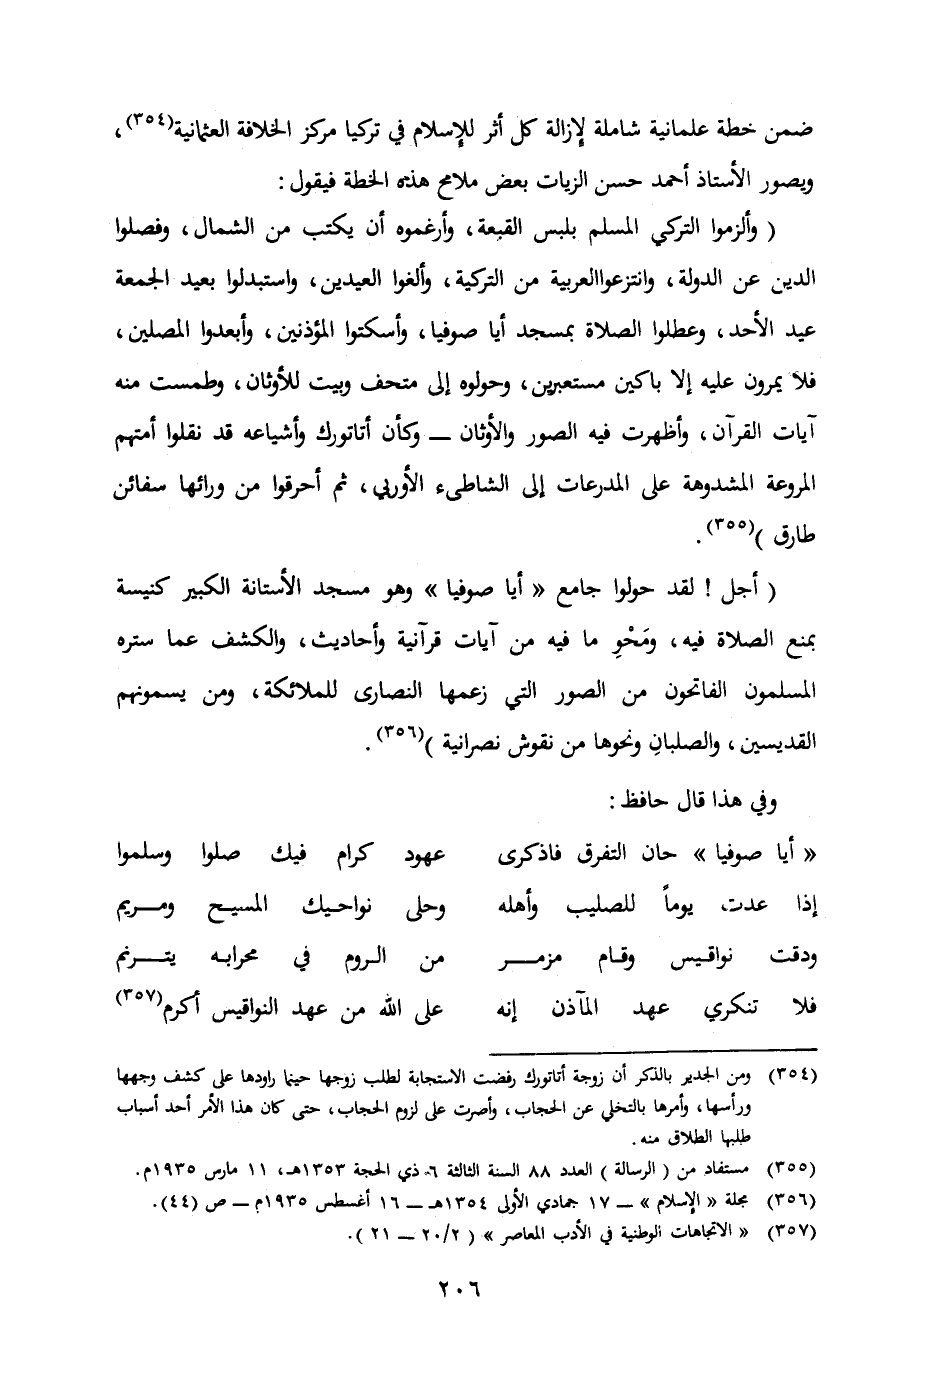 ضمن خطة علمانية شاملة لإزالة كل أثر للإسلام في تركيا مركز الخلافة العثمانية(٣٥٤)،
ويصور الأستاذ أحمد حسن الزيات بعض ملامح هذه الخطة فيقول :
( وألزموا التركي المسلم بلبس القبعة، وأرغموه أن يكتب من الشمال، وفصلوا
الدين عن الدولة، وانتزعواالعربية من التركية، وألغوا العيدين، واستبدلوا بعيد الجمعة
عيد الأحد، وعطلوا الصلاة بمسجد أيا صوفيا، وأسكتوا المؤذنين، وأبعدوا المصلين،
فلا يمرون عليه إلا باكين مستعبرين، وحولوه إلى متحف وبيت للأوثان، وطمست منه
آيات القرآن، وأظهرت فيه الصور والأوثان ــ وكأن أتاتورك وأشياعه قد نقلوا أمتهم
المروعة المشدوهة على المدرعات إلى الشاطىء الأوربي، ثم أحرقوا من ورائها سفائن
طارق )(٣٥٥).
( أجل ! لقد حولوا جامع « أيا صوفيا » وهو مسجد الأستانة الكبير كنيسة
بمنع الصلاة فيه، ومَحْوِ ما فيه من آيات قرآنية وأحاديث، والكشف عما ستره
المسلمون الفاتحون من الصور التي زعمها النصارى للملائكة، ومن يسمونهم
القديسين، والصلبانِ ونحوها من نقوش نصرانية )(٣٥٦).
وفي هذا قال حافظ :
« أيا صوفيا » حان التفرق فاذكرى عهود كرام فيك صلوا وسلموا
إذا عدت يوماً للصليب وأهله وحلى نواحيك المسيح ومريم
ودقت نواقيس وقام مزمر من الروم في محرابه يترنم
فلا تنكري عهد المآذن إنه على الله من عهد النواقيس أكرم(٣٥٧)
(٣٥٤) ومن الجدير بالذكر أن زوجة أتاتورك رفضت الاستجابة لطلب زوجها حينما راودها على كشف وجهها
ورأسها، وأمرها بالتخلي عن الحجاب، وأصرت على لزوم الحجاب، حتى كان هذا الأمر أحد أسباب
طلبها الطلاق منه.
(٣٥٥) مستفاد من ( الرسالة ) العدد ٨٨ السنة الثالثة ٦ ذي الحجة ١٣٥٣هـ، ١١ مارس ١٩٣٥م.
(٣٥٦) مجلة « الإسلام » ــ ١٧ جمادي الأولى ١٣٥٤هـ ــ ١٦ أغسطس ١٩٣٥م ــ ص (٤٤).
(٣٥٧) « الاتجاهات الوطنية في الأدب المعاصر » ( ٢٠/٢ ــ ٢١ ).
٢٠٦